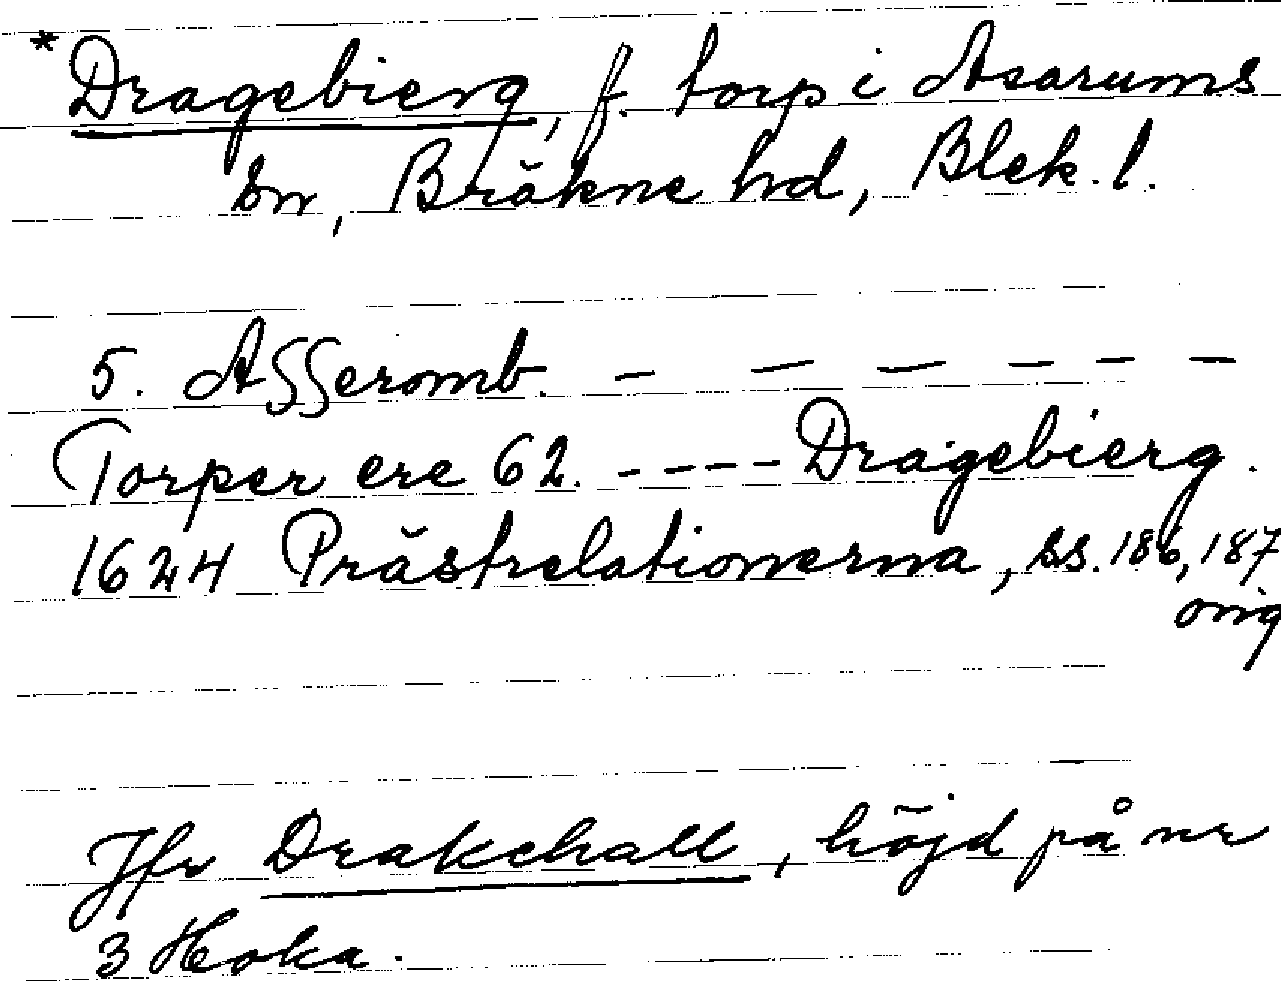 *Dragebierg, f. torp i Asarums
sn, Bräkne hd, Blek. l.
5. Asseromb. - - - - - -
Torper ere 62. - - - - Dragebierg.
1624 Prästrelationerna, ss. 186, 187
orig
Jfr Drakehall, höjd på nr
3 Hoka.